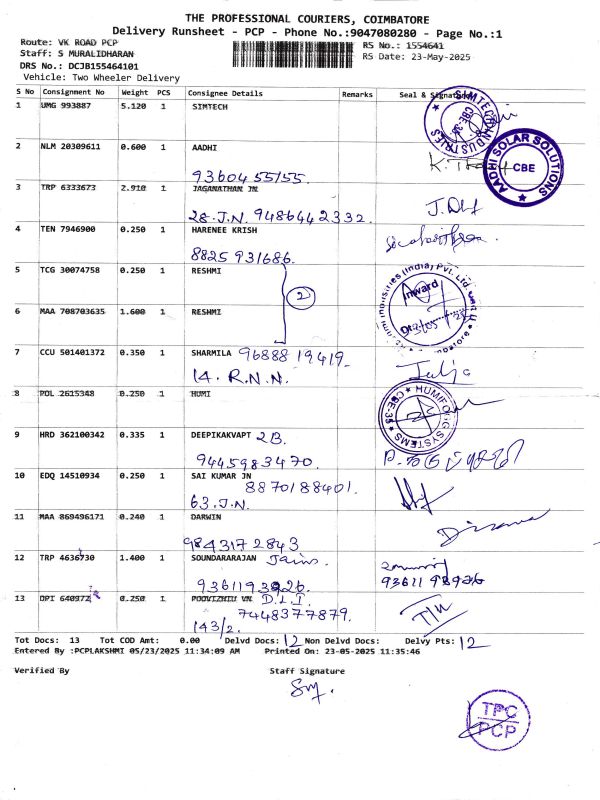 THE PROFESSIONAL COURIERS, COIMBATORE
Delivery Runsheet - PCP - Phone No.:9047080280 - Page No.:1
Route: VK ROAD PCP
RS No.: 1554641
Staff: S MURALIDHARAN
RS Date: 23-May-2025
DRS No.: DCJB155464101
Vehicle: Two Wheeler Delivery
S No Consignment No Weight PCS Consignee Details Remarks Seal & Signature
1 UMG 993887 5.120 1 SIMTECH
SIMTECH INDUSTRIES CBE-35
2 NLM 20309611 0.600 1 AADHI
9360455155.
AADHI SOLAR SOLUTIONS CBE
3 TRP 6333673 2.910 1 JAGANATHAN JN
28.J.N. 9486442332.
4 TEN 7946900 0.250 1 HARENEE KRISH
8825931686.
5 TCG 30074758 0.250 1 RESHMI
2
Industries (India) Pvt. Ltd.
Inward
6 MAA 708703635 1.600 1 RESHMI
7 CCU 501401372 0.350 1 SHARMILA 9688819419.
14. R.N.N.
8 POL 2615348 0.250 1 HUMI
HUMIFOGG SYSTEMS CBE-35
9 HRD 362100342 0.335 1 DEEPIKAKVAPT 2B.
9445983470.
10 EDQ 14510934 0.250 1 SAI KUMAR JN
8870188401.
63.J.N.
11 MAA 869496171 0.240 1 DARWIN
9843172843
12 TRP 4636730 1.400 1 SOUNDARARAJAN Jains.
9361193926.
9361193926
13 DPI 640972 0.250 1 POOVIZHIU VN D.L.I.
7448377879.
143/2.
Tot Docs: 13 Tot COD Amt: 0.00 Delvd Docs: 12 Non Delvd Docs: Delvy Pts: 12
Entered By :PCPLAKSHMI 05/23/2025 11:34:09 AM Printed On: 23-05-2025 11:35:46
Verified By
Staff Signature
TPC
PCP